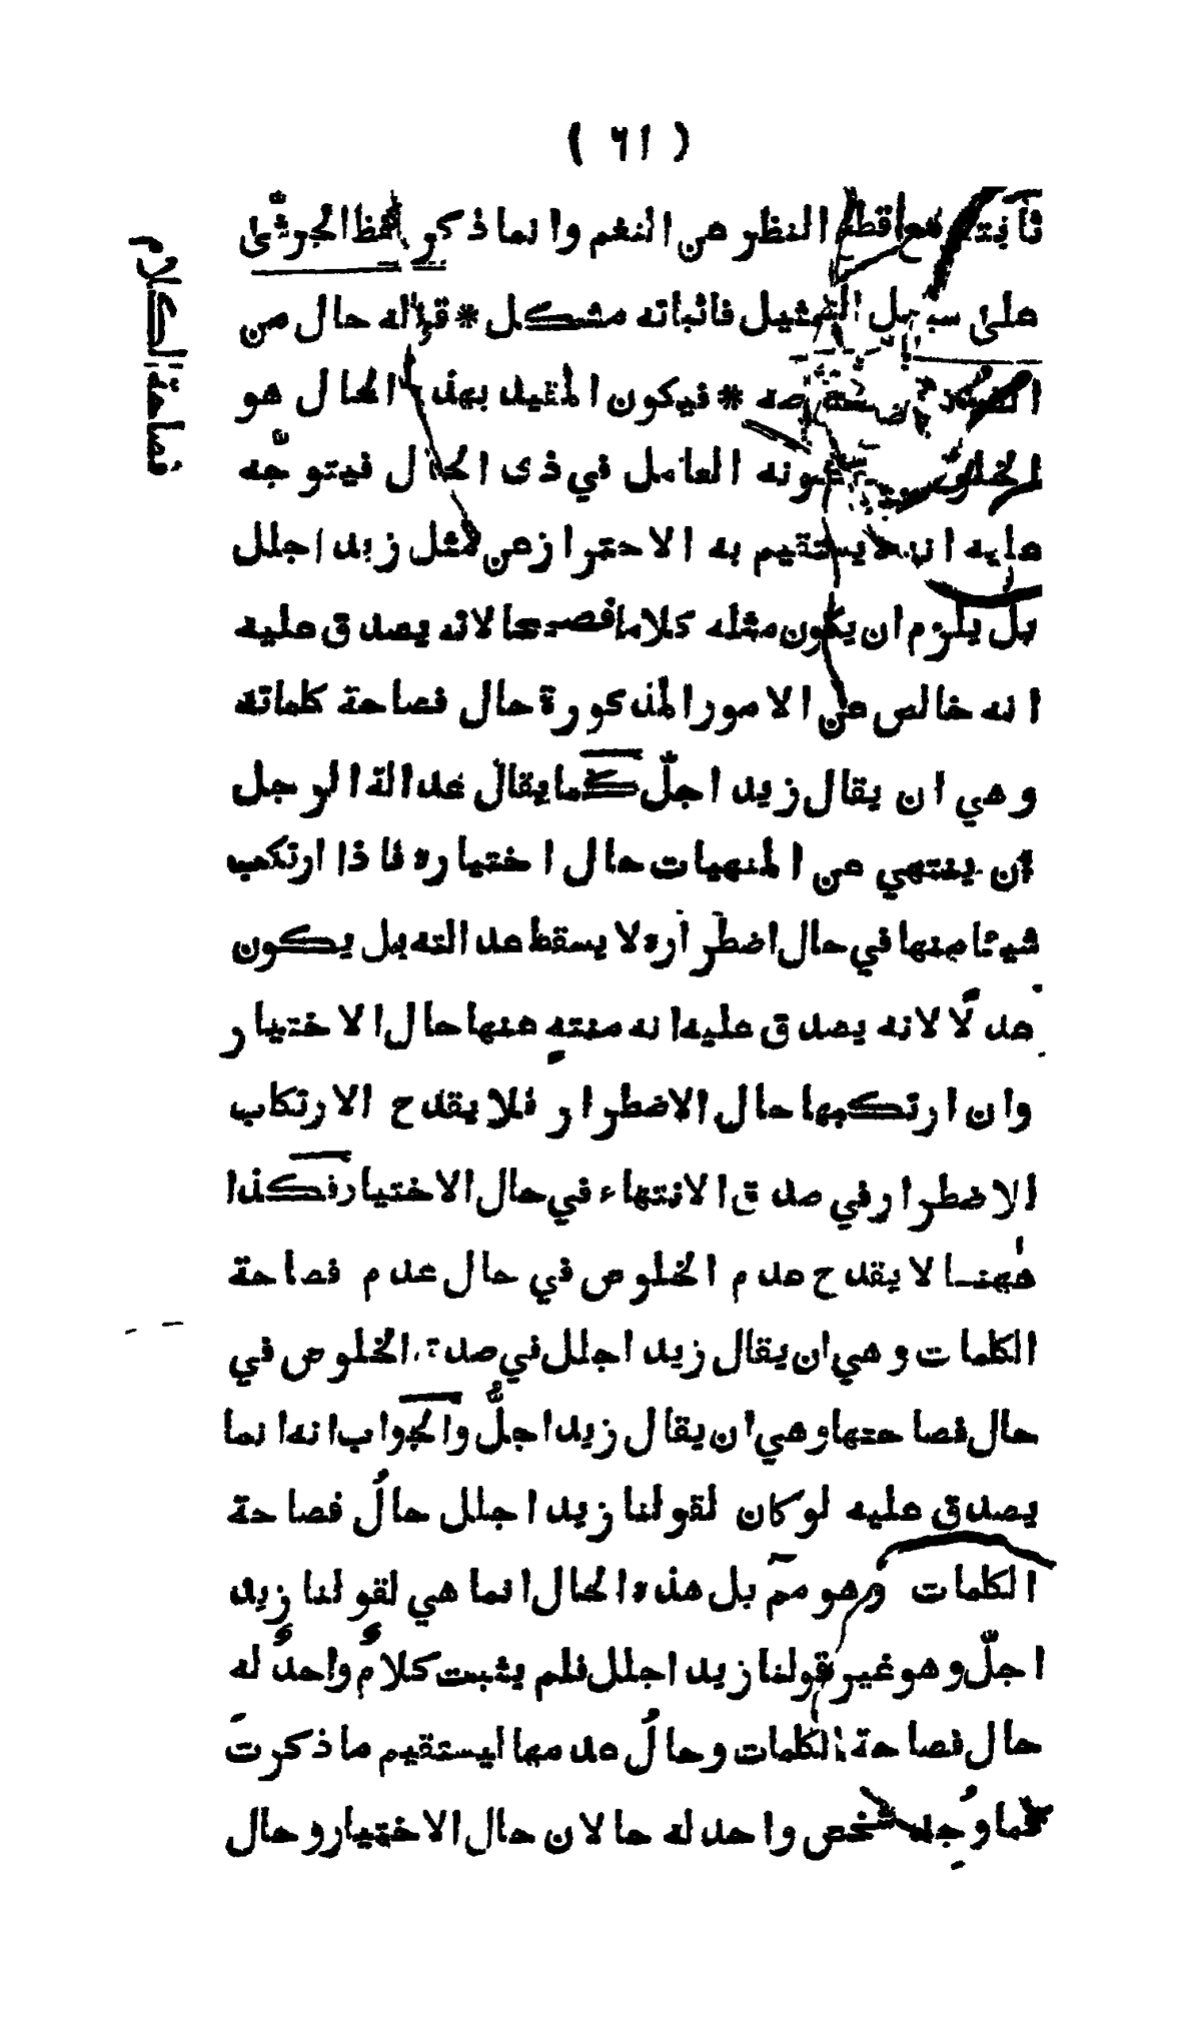 ( ٦١ )
ثابتة مع اقطع النظر عن النغم وانما ذكر لفظ الجرشّى
على سبيل التمثيل فاثباته مشكل * قوله حال من
* فيكون المقيد بهذا الحال هو
الخلوص العامل في ذى الحال فيتوجّه
عليه انه لا يستقيم به الاحتراز عن مثل زيد اجلل
بل يلزم ان يكون مثله كلاما فصيحا لانه يصدق عليه
انه خالص عن الامور المذكورة حال فصاحة كلماته
وهي ان يقال زيد اجلّ كما يقال عدالة الرجل
ان ينتهي عن المنهيات حال اختياره فاذا ارتكب
شيئا منها في حال اضطراره لا يسقط عدالته بل يكون
عدلا لانه يصدق عليه انه منته عنها حال الاختيار
وان ارتكبها حال الاضطرار فلا يقدح الارتكاب
الاضطرار في صدق الانتهاء في حال الاختيار فكذا
ههنا لا يقدح عدم الخلوص في حال عدم فصاحة
الكلمات وهي ان يقال زيد اجلل في صدق الخلوص في
حال فصاحتها وهي ان يقال زيد اجلُّ والجواب انه انما
يصدق عليه لو كان لقولنا زيد اجلل حالُ فصاحة
الكلمات وهو مم بل هذه الحال انما هي لقولنا زيد
اجلّ وهو غير قولنا زيد اجلل فلم يثبت كلامٌ واحدٌ له
حال فصاحة الكلمات وحالُ عدمها ليستقيم ما ذكرتَ
كما وُجد شخص واحد له حالان حال الاختيار وحال
فصاحة الكلام